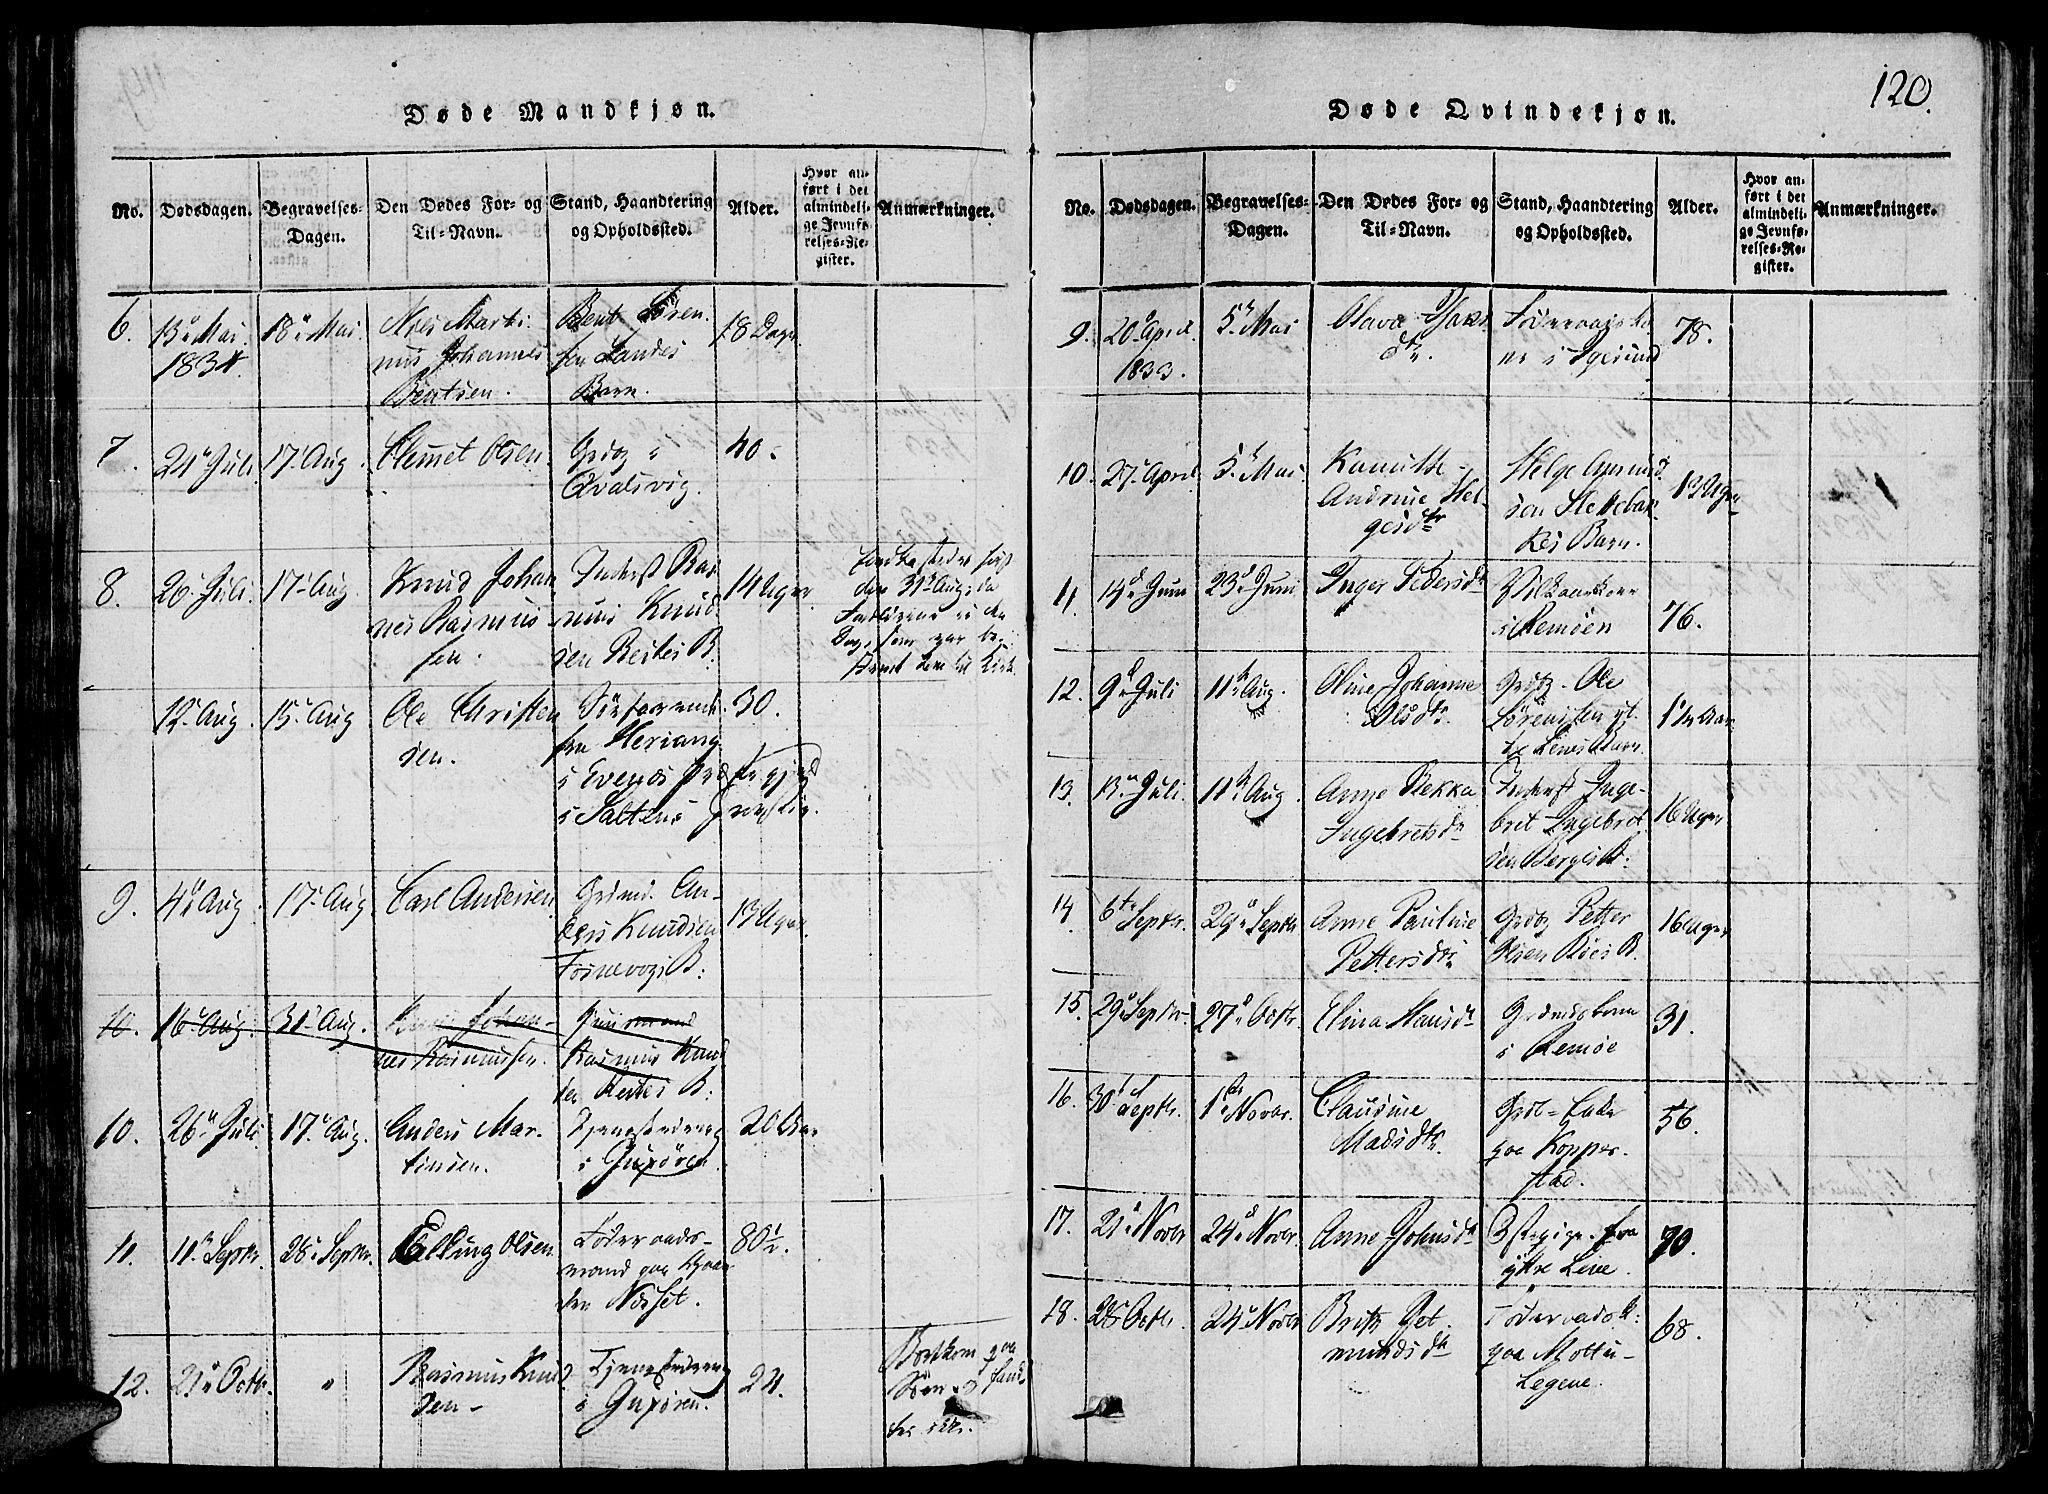 120.
Døde Mandkjøn.
No. Dødsdagen. Begravelses-Dagen. Den Dødes For- og Til-Navn. Stand, Haandtering og Opholdssted. Alder. Hvor anført i det almindelige Jevnførelses-Register. Anmærkninger.
6. 13 Mai 1834. 18 Mai. Nils Martinus Johannes Bentsen. Bent Sørensen Landes Barn. 18 Dage
7. 24 Juli 17 Aug Clemet Olsen Grdbg i Qvalsvig. 40.
8. 26 Juli 17 Aug Knud Johannes Rasmussen. Inderst Rasmus Knudsen Reites B. 14 Uger
12 Aug 15 Aug Ole Christensen. Søefarende fra Heriang i Evenæs i Salten 30.
9. 4 Aug 17 Aug Carl Andersen Grdmd. Anders Knudsen Fosnevogs B: 13 Uger
10. 16 Aug. 31 Aug. Johannes Rasmussen. Rasmus Knudsen Reites B:
10. 26 Juli 17 Aug. Anders Martinsen. Tjenestedreng i Gurskøen 20 Aar
11. 11 Septbr. 28 Septbr. Elling Olsen Føderaadsmand paa Gaarden Norset. 80½.
12. 21 Octb. " Rasmus Knudsen Tjenestedreng i Gurskøen. 24. Bortkom paa Søen
Døde Qvindekjøn.
No. Dødsdagen. Begravelses-Dagen. Den Dødes For- og Til-Navn. Stand, Haandtering og Opholdssted. Alder. Hvor anført i det almindelige Jevnførelses-Register. Anmærkninger.
9. 20 April 1833. 5 Mai Olava dtr. i Igesund 78.
10. 27 April 5 Mai Knutte Andrine Helgesdtr Helge Amundsen Slettebakkes Barn. 13 Uger
11. 14 Juni 23 Juni Inger Pedersdtr i Remøen 76.
12. 9 Juli 11 Aug. Oline Johanne Olsdtr. Grdbg. Ole Sørensen Leines Barn
13. 13 Juli. 11 Aug. Anne Rekka Ingebretsdtr Inderst Ingebret Ingebretsen Berges B. 16 Uger
14. 6te Septbr. 29 Septbr Anne Pauline Pettersdtr Grdbg Petter Olsen Røes B. 16 Uger
15. 29 Septbr. 27 Octbr. Elina Hansdtr Grdmdskone i Remøe 31.
16. 30 Septbr. 1 Novbr. Claudine Madsdtr. Grdb-Enke paa Kopperstad. 56.
17. 21 Novbr 24 Novbr. Anne Johnsdtr pige fra yttre Leine. 70.
18. 28 Octbr. 24 Novbr Brithe Getmundsdtr Føderaadsk: paa Moltu- 68.